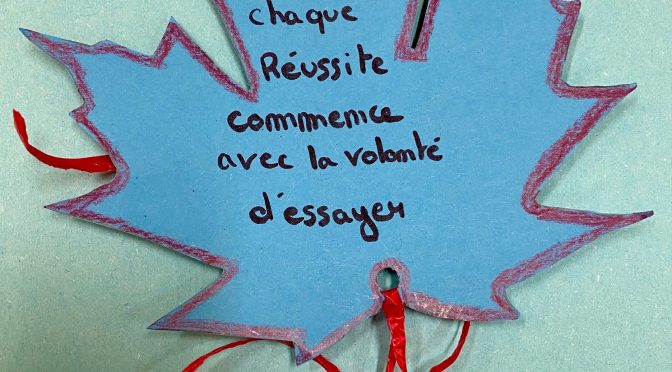 chaque
Réussite
commence
avec la volonté
d'essayer